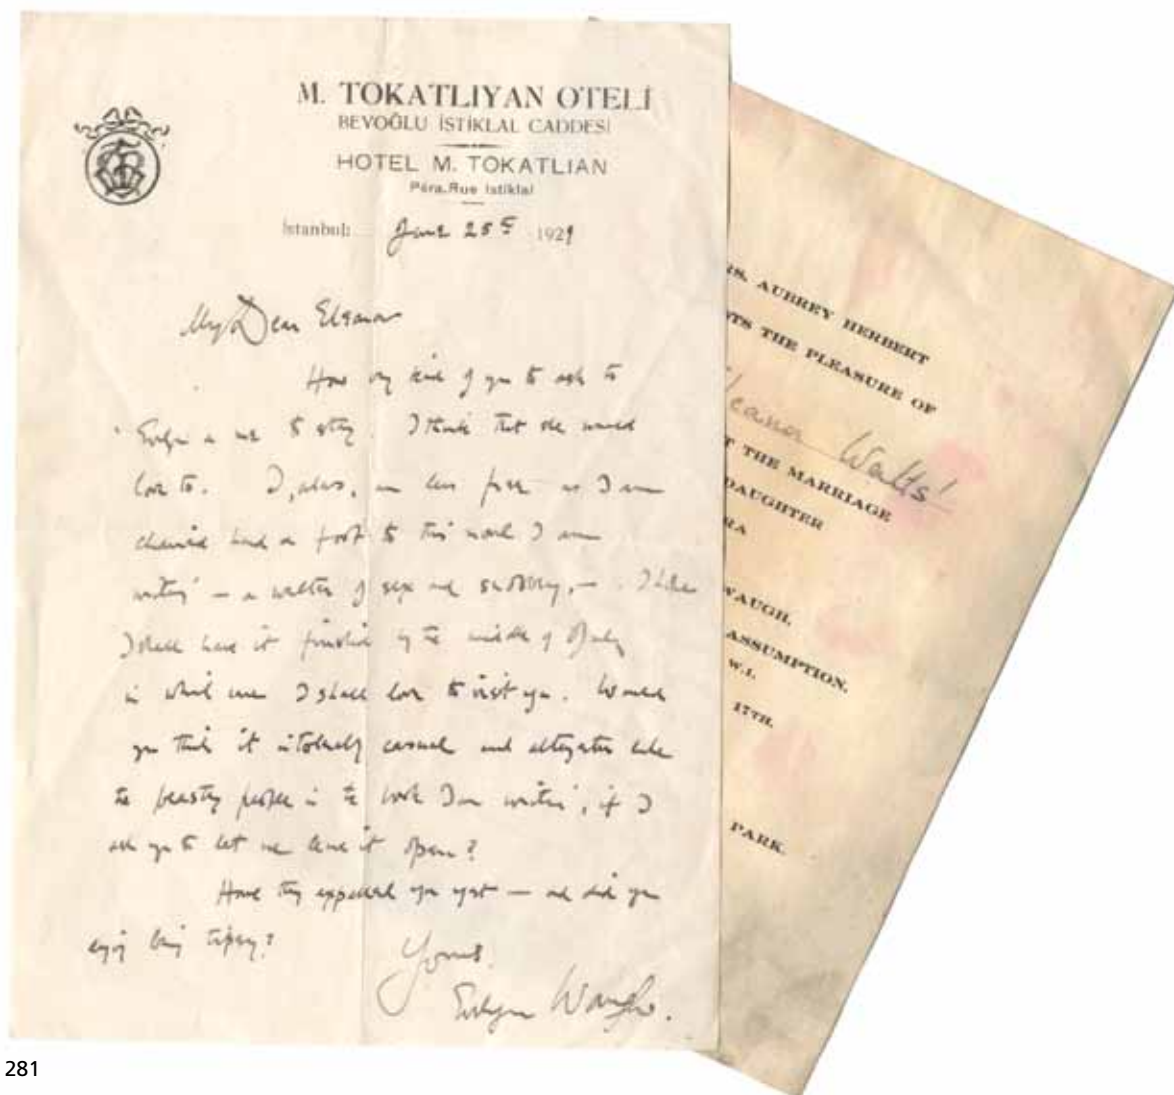 M. TOKATLIYAN OTELİ
BEYOĞLU İSTİKLAL CADDESİ
HOTEL M. TOKATLIAN
Péra. Rue Istiklal
İstanbul: June 25th 1929
My Dear Eleanor
How very kind of you to ask to
Evelyn & me to stay. I think that she would
love to. I, alas, am less free as I am
chained hand & foot to this novel I am
writing – a welter of sex and snobbery, –
I shall have it finished by the middle of July
in which case I shall love to visit you. Would
you think it intolerably casual and altogether like
the beastly people in the book I am writing, if I
ask you to let me leave it open?
Have they expelled you yet – and did you
enjoy being tipsy?
Yours.
Evelyn Waugh.
RS. AUBREY HERBERT
TS THE PLEASURE OF
leanor Watts!
T THE MARRIAGE
DAUGHTER
RA
WAUGH,
ASSUMPTION,
W.1.
17TH.
PARK.
281